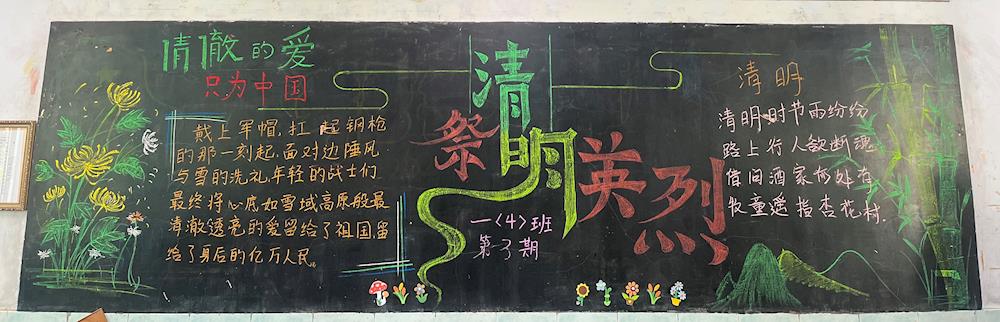 清澈的爱
只为中国
戴上军帽,扛起钢枪
的那一刻起,面对边陲风
与雪的洗礼,年轻的战士们
最终将心底如雪域高原般最
清澈透亮的爱留给了祖国,留
给了身后的亿万人民。
清明
祭英烈
一〈4〉班
第3期
清明
清明时节雨纷纷
路上行人欲断魂
借问酒家何处有
牧童遥指杏花村.